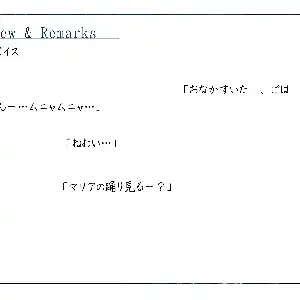 ew & Remarks
ボイス
「おなかすいた…、ごは
んー…ムニャムニャ…」
「ねむい…」
「マリアの踊り見るー？」